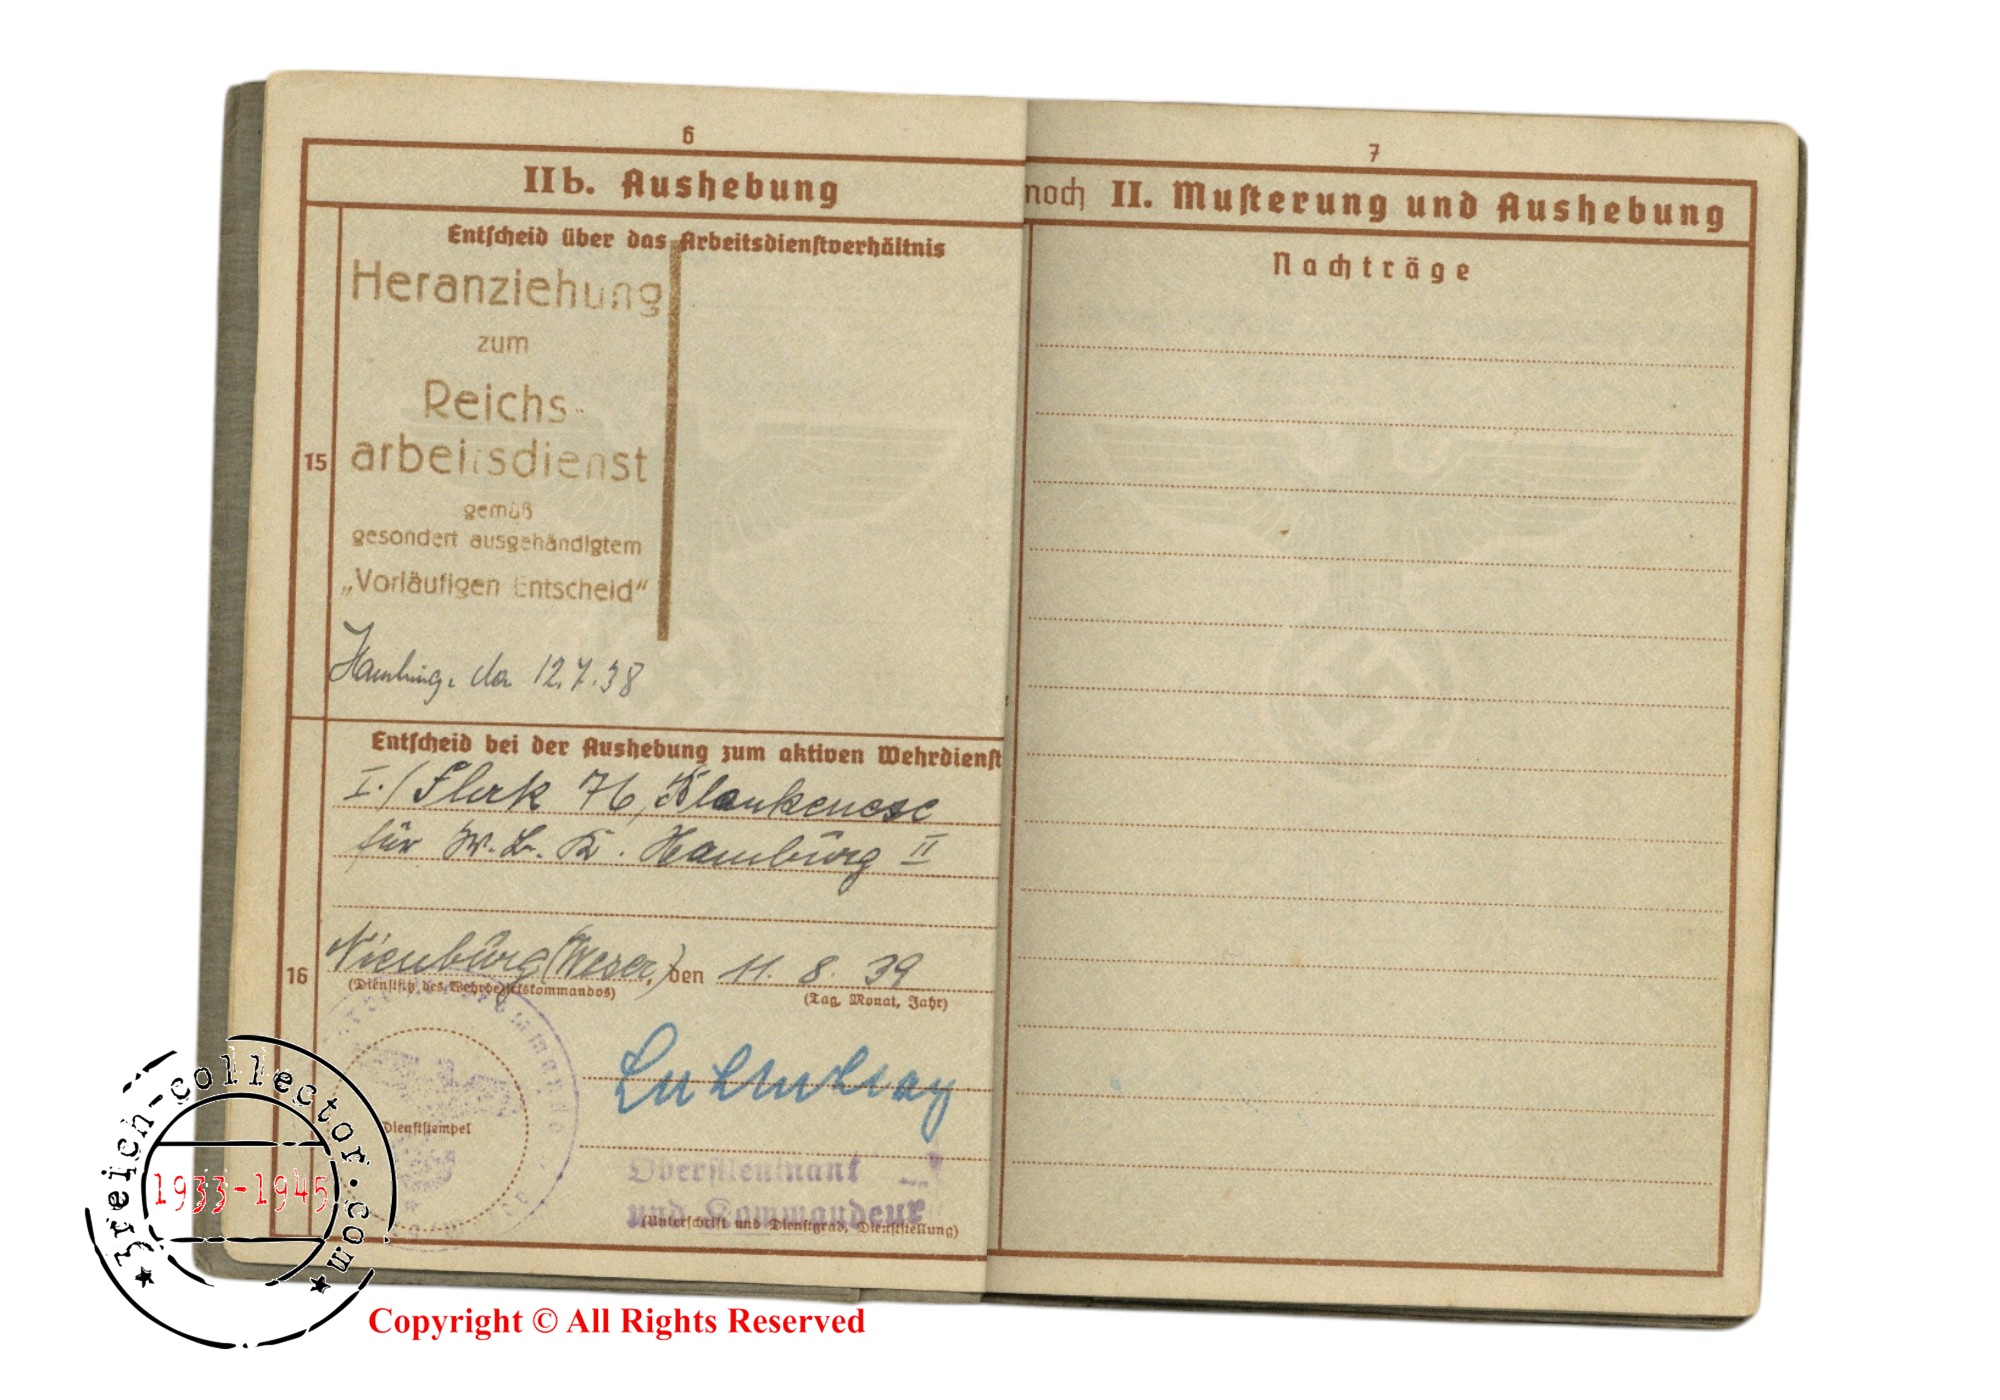 6
IIb. Aushebung
Entscheid über das Arbeitsdienstverhältnis
15
Heranziehung
zum
Reichs-
arbeitsdienst
gemäß
gesondert ausgehändigtem
„Vorläufigen Entscheid“
Hamburg, den 12.7.38
Entscheid bei der Aushebung zum aktiven Wehrdienst
16
I./Flak 76, Blankenese
für W.B.K. Hamburg II
Nienburg (Weser,) den 11. 8. 39
(Dienstsitz des Wehrbezirkskommandos)
(Tag, Monat, Jahr)
Dienststempel
Oberstleutnant
und Kommandeur
(Unterschrift und Dienstgrad, Dienststellung)
7
noch II. Musterung und Aushebung
Nachträge
3reich-collector.com
1933-1945
Copyright © All Rights Reserved